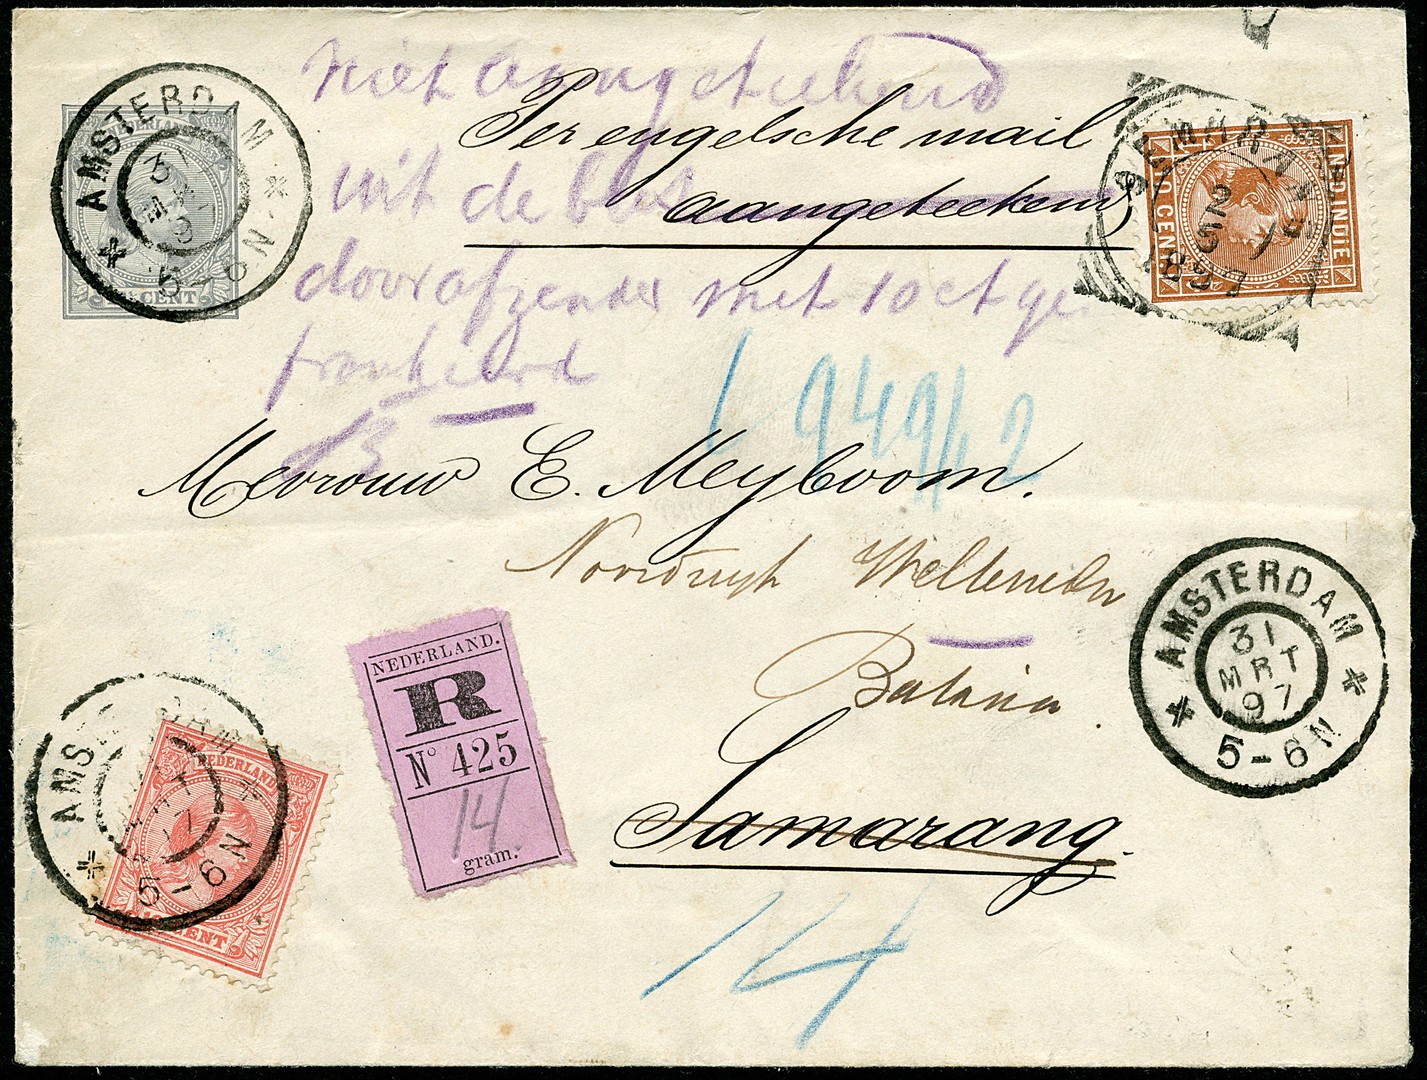 niet aangetekend
Per engelsche mail
uit de bus
aangeteekend
door afzender met 10 ct ge
frankeerd
AMSTERDAM
5-6N
CENT
SEMARANG
NED.INDIE
10 CENT
94942
Mevrouw E. Meyboom.
Noordwijk Weltevreden
Batavia
Samarang.
NEDERLAND.
R
No 425
14
gram.
AMSTERDAM
31
MRT
97
5-6N
AMSTERDAM
5-6N
NEDERLAND
10 CENT
14